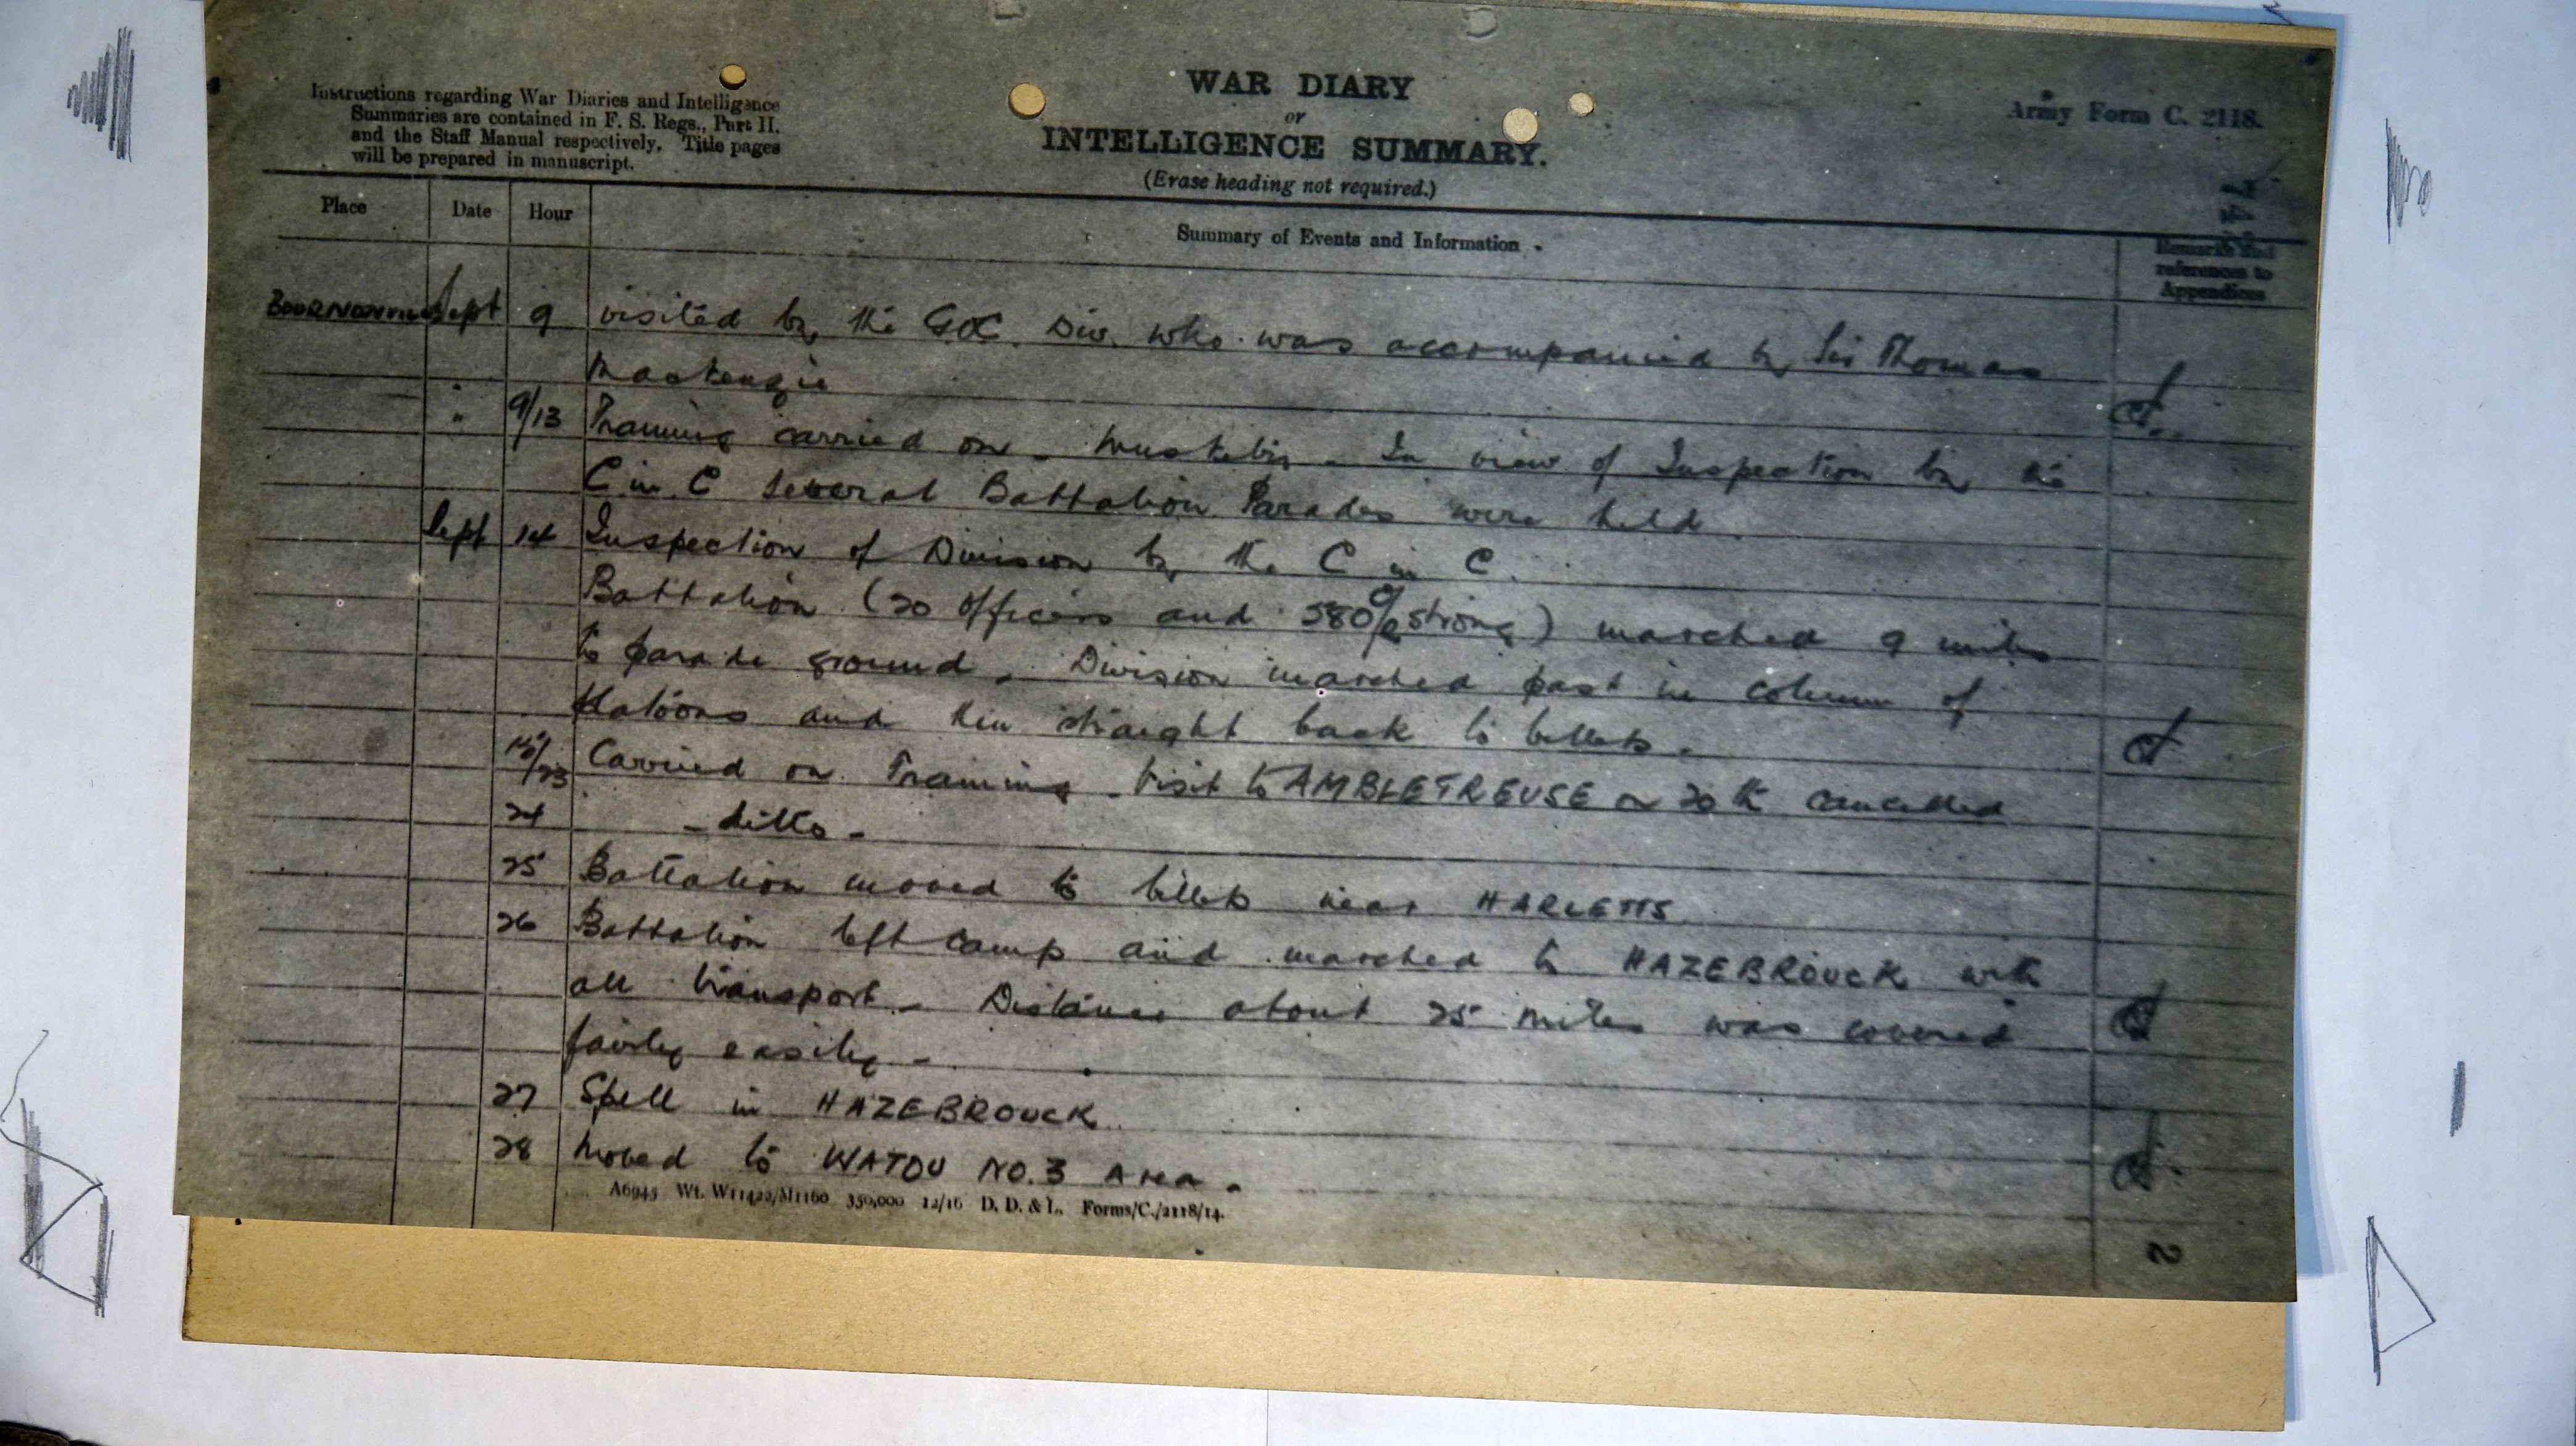 Instructions regarding War Diaries and Intelligence
Summaries are contained in F. S. Regs., Part II.
and the Staff Manual respectively. Title pages
will be prepared in manuscript.
WAR DIARY
or
INTELLIGENCE SUMMARY.
(Erase heading not required.)
Army Form C. 2118.
Place Date Hour Summary of Events and Information Remarks and
references to
Appendices
Sept 9 visited by the GOC. Div. who was accompanied by Sir Thomas
Mackenzie
" 9/13 Training carried on - - In view of Inspection by the
C in C several Battalion Parades were held.
Sept 14 Inspection of Division by the C in C.
Battalion (20 officers and 580 o/r strong) marched 9 miles
to parade ground. Division marched past in column of
Platoons and then straight back to billets.
15/23 Carried on Training - Visit to AMBLETREUSE on 20th cancelled
24 - ditto -
25 Battalion moved to billets near HARLETTS
26 Battalion left camp and marched to HAZEBROUCK with
all transport - Distance about 25 miles was covered
fairly easily -
27 Spell in HAZEBROUCK
28 Moved to WATOU NO. 3 Area.
A6945 Wt. W11422/M1160 350,000 12/16 D. D. & L. Forms/C./2118/14.
2